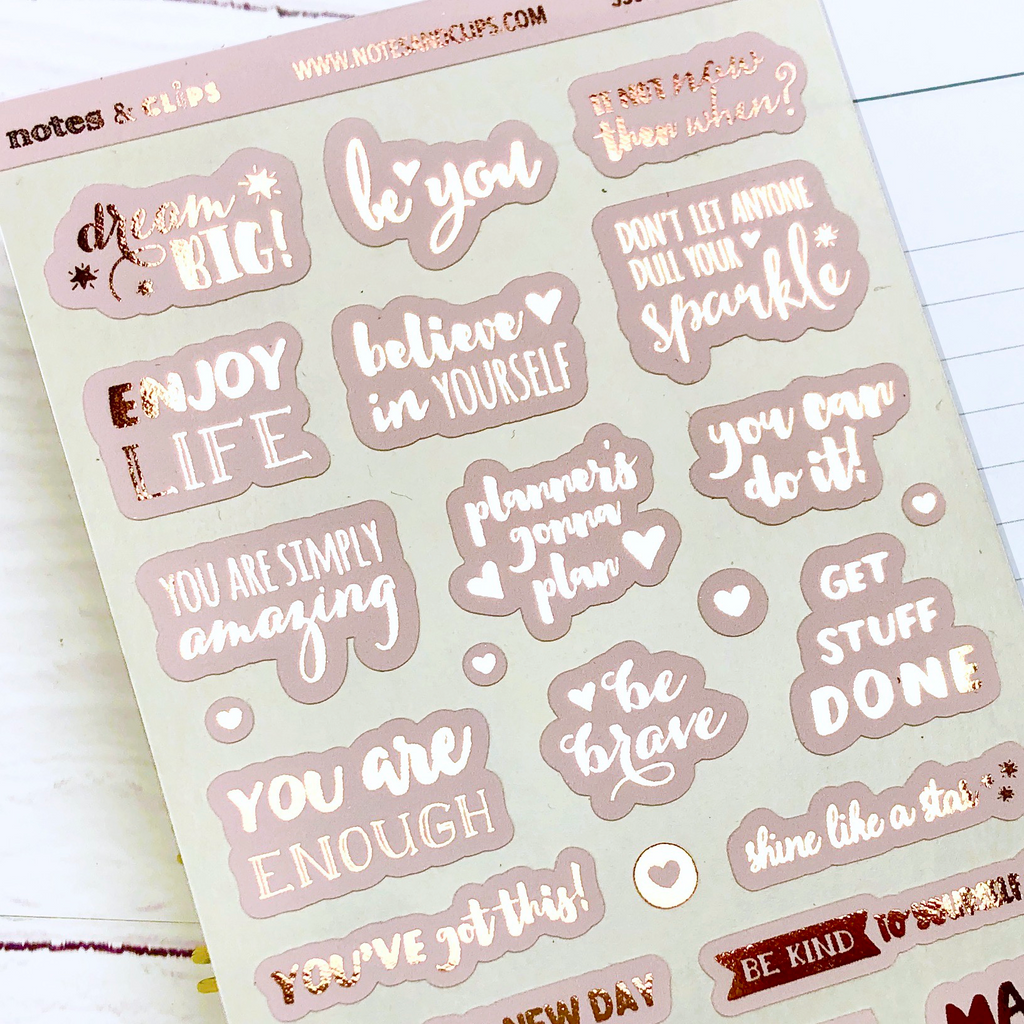 notes & CLIPS
WWW.NOTESANDCLIPS.COM
dream
BIG!
be you
IF NOT now
then when?
ENJOY
LIFE
believe
in YOURSELF
DON'T LET ANYONE
DULL YOUR
sparkle
YOU ARE SIMPLY
amazing
planner's
gonna
plan
you can
do it!
GET
STUFF
DONE
YOU are
ENOUGH
be
brave
shine like a star
YOU'VE got this!
BE KIND TO YOURSELF
NEW DAY